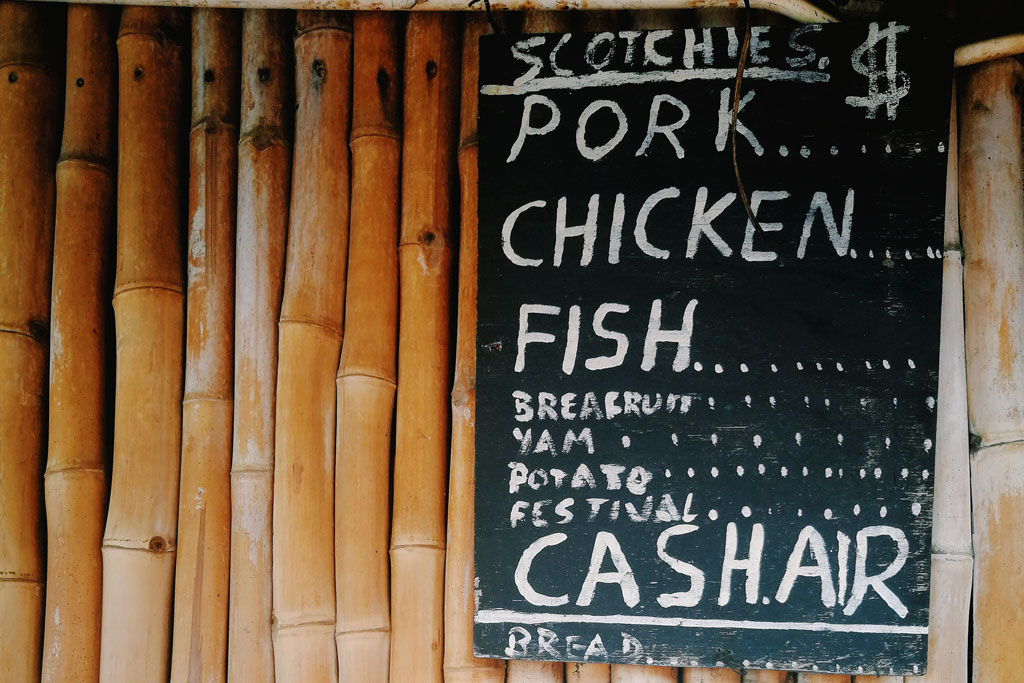 SCOTCHIES. $
PORK..........
CHICKEN.......
FISH..........
BREAFRUIT.......
YAM.......
POTATO............
FESTIVAL........
CASH.AIR
BREAD..........